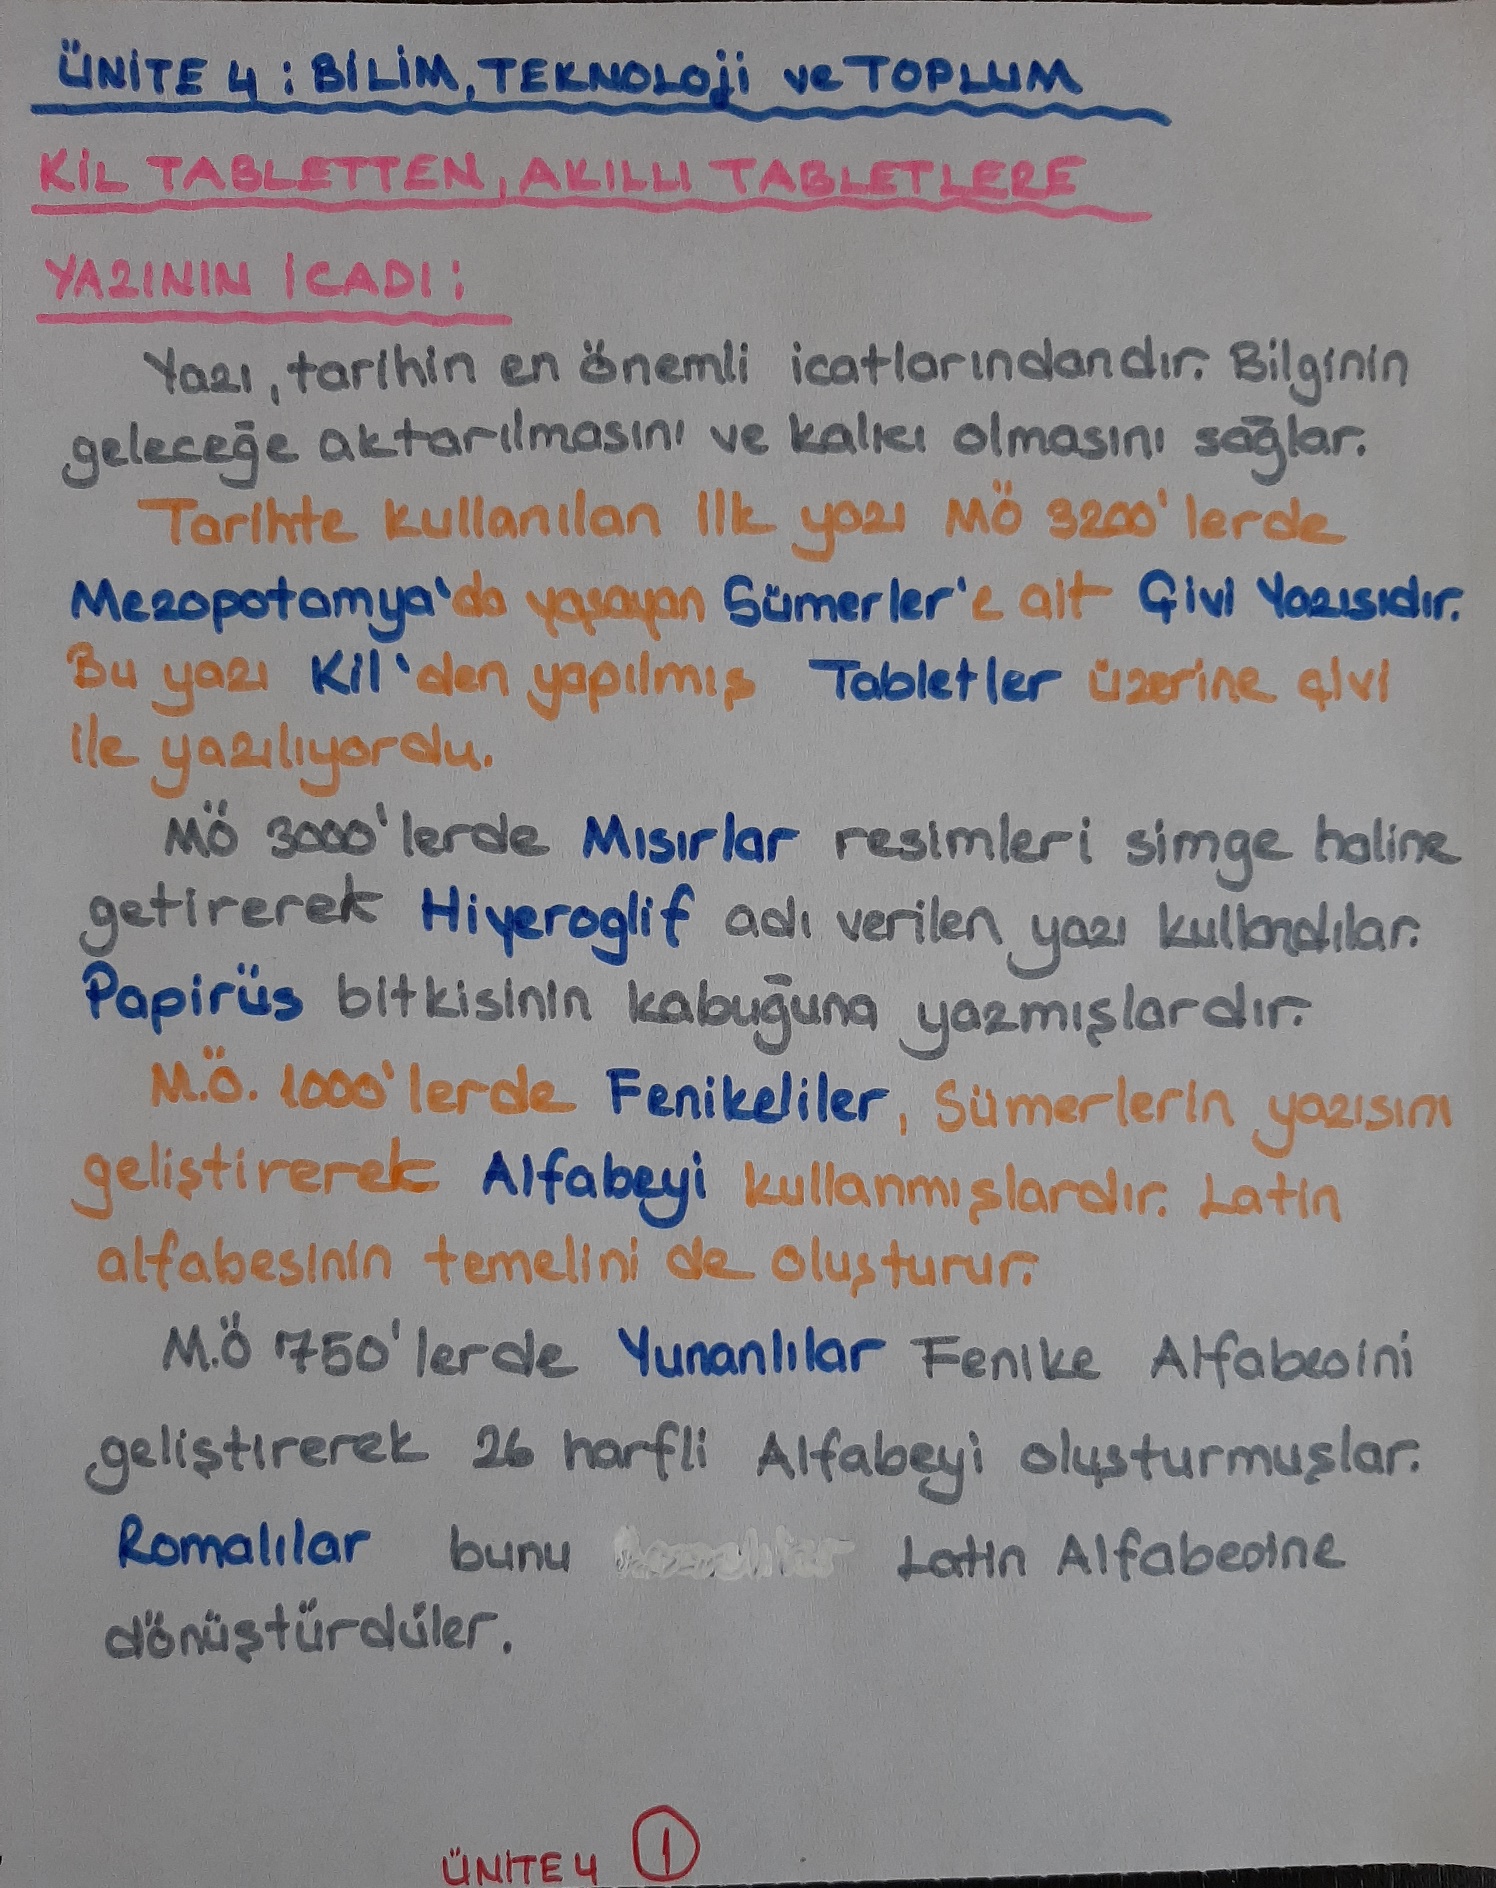 ÜNİTE 4 : BİLİM, TEKNOLOJİ ve TOPLUM
KİL TABLETTEN, AKILLI TABLETLERE
YAZININ İCADI :
Yazı, tarihin en önemli icatlarındandır. Bilginin
geleceğe aktarılmasını ve kalıcı olmasını sağlar.
Tarihte kullanılan ilk yazı MÖ 3200'lerde
Mezopotamya'da yaşayan Sümerler'e ait Çivi Yazısıdır.
Bu yazı Kil'den yapılmış Tabletler üzerine çivi
ile yazılıyordu.
MÖ 3000'lerde Mısırlar resimleri simge haline
getirerek Hiyeroglif adı verilen yazı kullandılar.
Papirüs bitkisinin kabuğuna yazmışlardır.
M.Ö. 1000'lerde Fenikeliler, Sümerlerin yazısını
geliştirerek Alfabeyi kullanmışlardır. Latin
alfabesinin temelini de oluşturur.
M.Ö 750'lerde Yunanlılar Fenike Alfabesini
geliştirerek 26 harfli Alfabeyi oluşturmuşlar.
Romalılar bunu Latin Alfabesine
dönüştürdüler.
ÜNİTE 4 1